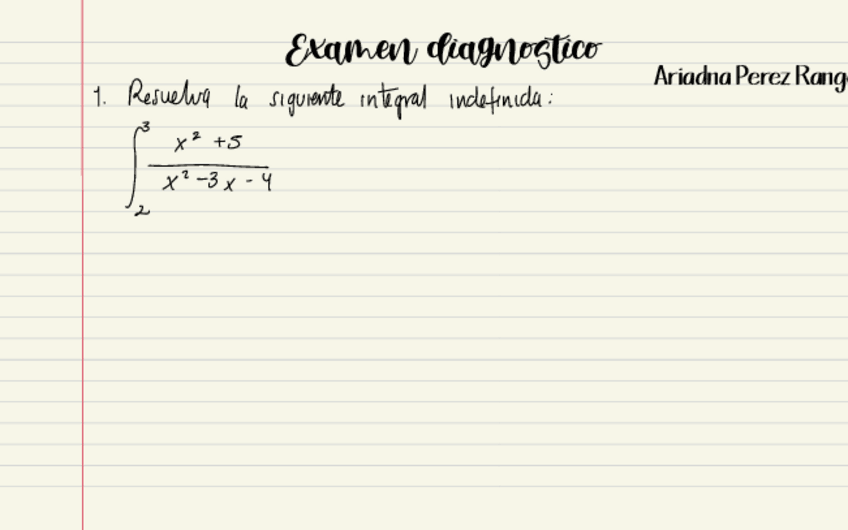 Examen diagnostico
Ariadna Perez Rang
1. Resuelva la siguiente integral indefinida:
∫₂³ (x² + 5)/(x² - 3x - 4)